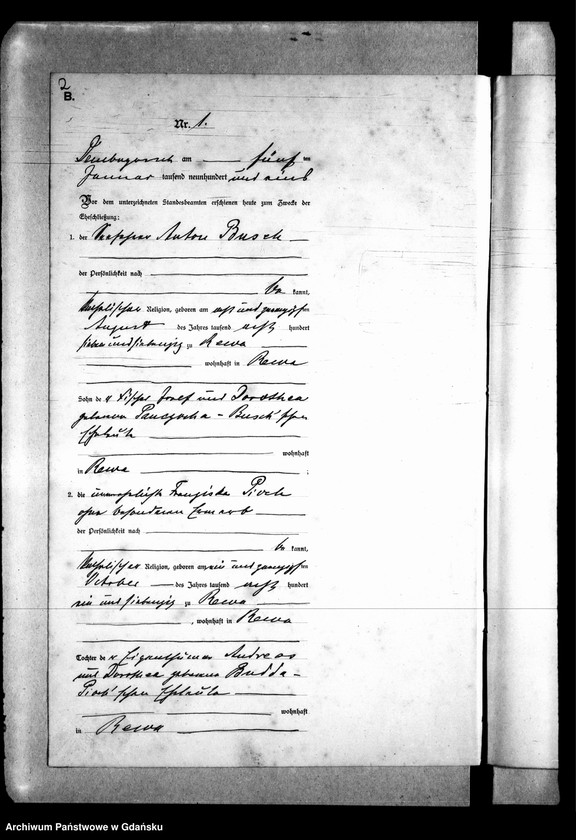 2
B.
Nr. 1.
am fünf ten
Januar tausend neunhundert und eins
Vor dem unterzeichneten Standesbeamten erschienen heute zum Zwecke der
Eheschließung:
1. der Seefahrer Anton Busch
der Persönlichkeit nach
be kannt,
katholischer Religion, geboren am acht und zwanzigsten
August des Jahres tausend acht hundert
sieben und siebenzig zu Rewa
wohnhaft in Rewa
Sohn der Fischer Josef und Dorothea
geborene - Busch'schen
Eheleute
wohnhaft
in Rewa ;
2. die unverehelichte Franziska Pioch
ohne besonderen Erwerb
der Persönlichkeit nach
be kannt,
katholischer Religion, geboren am ein und zwanzigsten
October des Jahres tausend acht hundert
ein und siebenzig zu Rewa
, wohnhaft in Rewa
Tochter der Eigenthümer Andreas
und Dorothea geborene Budda-
Pioch'schen Eheleute
wohnhaft
in Rewa
Archiwum Państwowe w Gdańsku